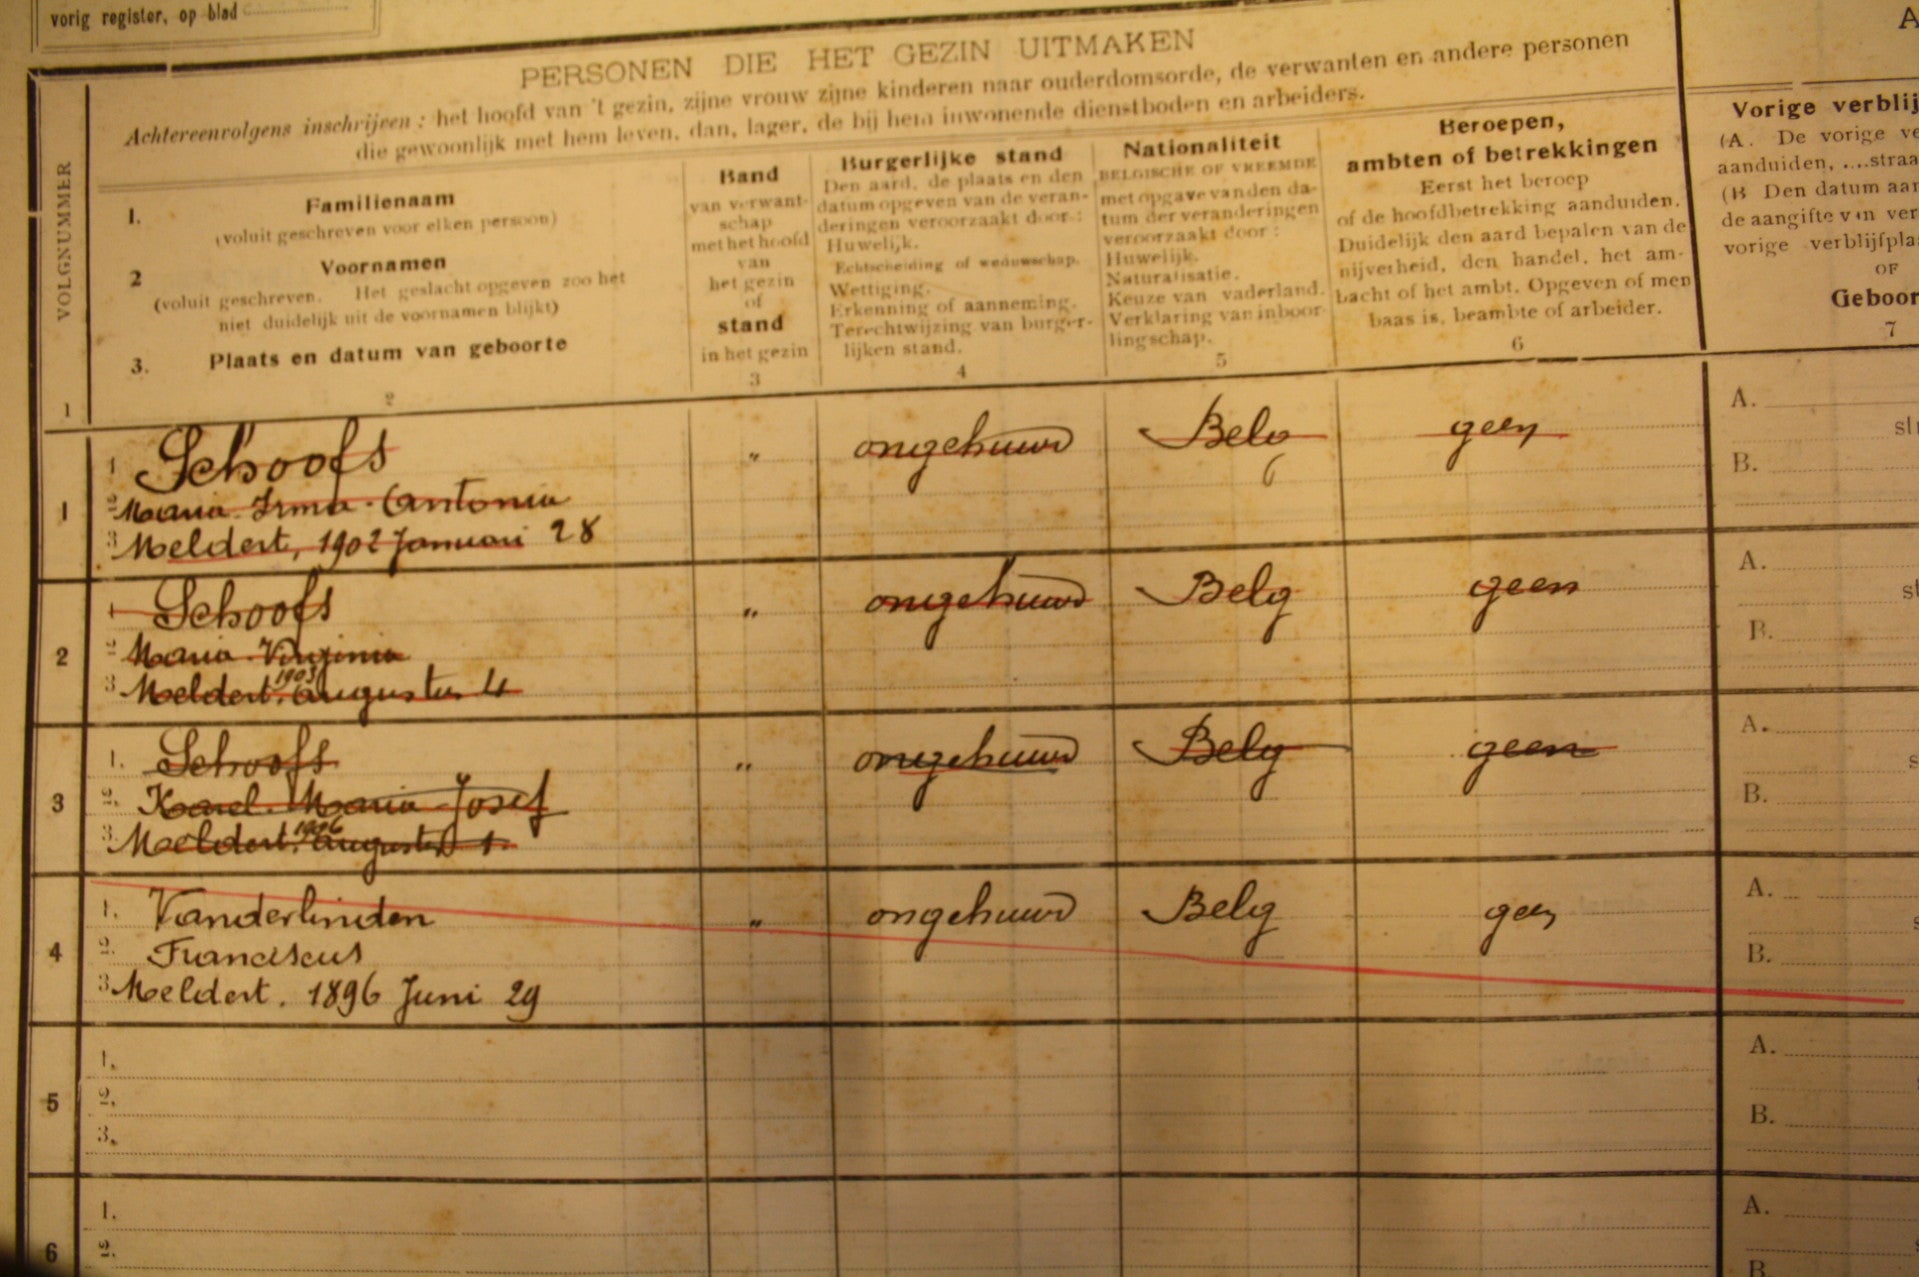 vorig register, op blad
PERSONEN DIE HET GEZIN UITMAKEN
Achtereenvolgens inschrijven : het hoofd van 't gezin, zijne vrouw zijne kinderen naar ouderdomsorde, de verwanten en andere personen
die gewoonlijk met hem leven, dan, lager, de bij hem inwonende dienstboden en arbeiders.
VOLGNUMMER
1
1. Familienaam
(voluit geschreven voor elken persoon)
2 Voornamen
(voluit geschreven. Het geslacht opgeven zoo het
niet duidelijk uit de voornamen blijkt)
3. Plaats en datum van geboorte
2
Band
van verwant-
schap
met het hoofd
van
het gezin
of
stand
in het gezin
3
Burgerlijke stand
Den aard, de plaats en den
datum opgeven van de veran-
deringen veroorzaakt door :
Huwelijk.
Echtscheiding of weduwschap.
Wettiging.
Erkenning of aanneming.
Terechtwijzing van burger-
lijken stand.
4
Nationaliteit
BELGISCHE OF VREEMDE
met opgave van den da-
tum der veranderingen
veroorzaakt door :
Huwelijk.
Naturalisatie.
Keuze van vaderland.
Verklaring van inboor-
lingschap.
5
Beroepen,
ambten of betrekkingen
Eerst het beroep
of de hoofdbetrekking aanduiden.
Duidelijk den aard bepalen van de
nijverheid, den handel, het am-
bacht of het ambt. Opgeven of men
baas is, beambte of arbeider.
6
A
Vorige verblij
(A. De vorige ve
aanduiden, ....straa
(B Den datum aan
de aangifte van ver
vorige verblijfpla
OF
Geboor
7
1
1 Schoofs " ongehuwd Belg geen
2 Maria Irma Antonia
3 Meldert, 1902 Januari 28
A.
st
B.
2
1 Schoofs " ongehuwd Belg geen
2 Maria Virginia
3 Meldert. 1903 Augustus 4
A.
st
B.
3
1. Schoofs " ongehuwd Belg geen
2. Karel Maria Josef
3. Meldert. 1906 Augustus 1.
A.
s
B.
4
1. Vanderlinden " ongehuwd Belg geen
2. Franciscus
3 Meldert. 1896 Juni 29
A.
s
B.
5
1.
2.
3.
A.
B.
6
1.
2.
A.
s
B